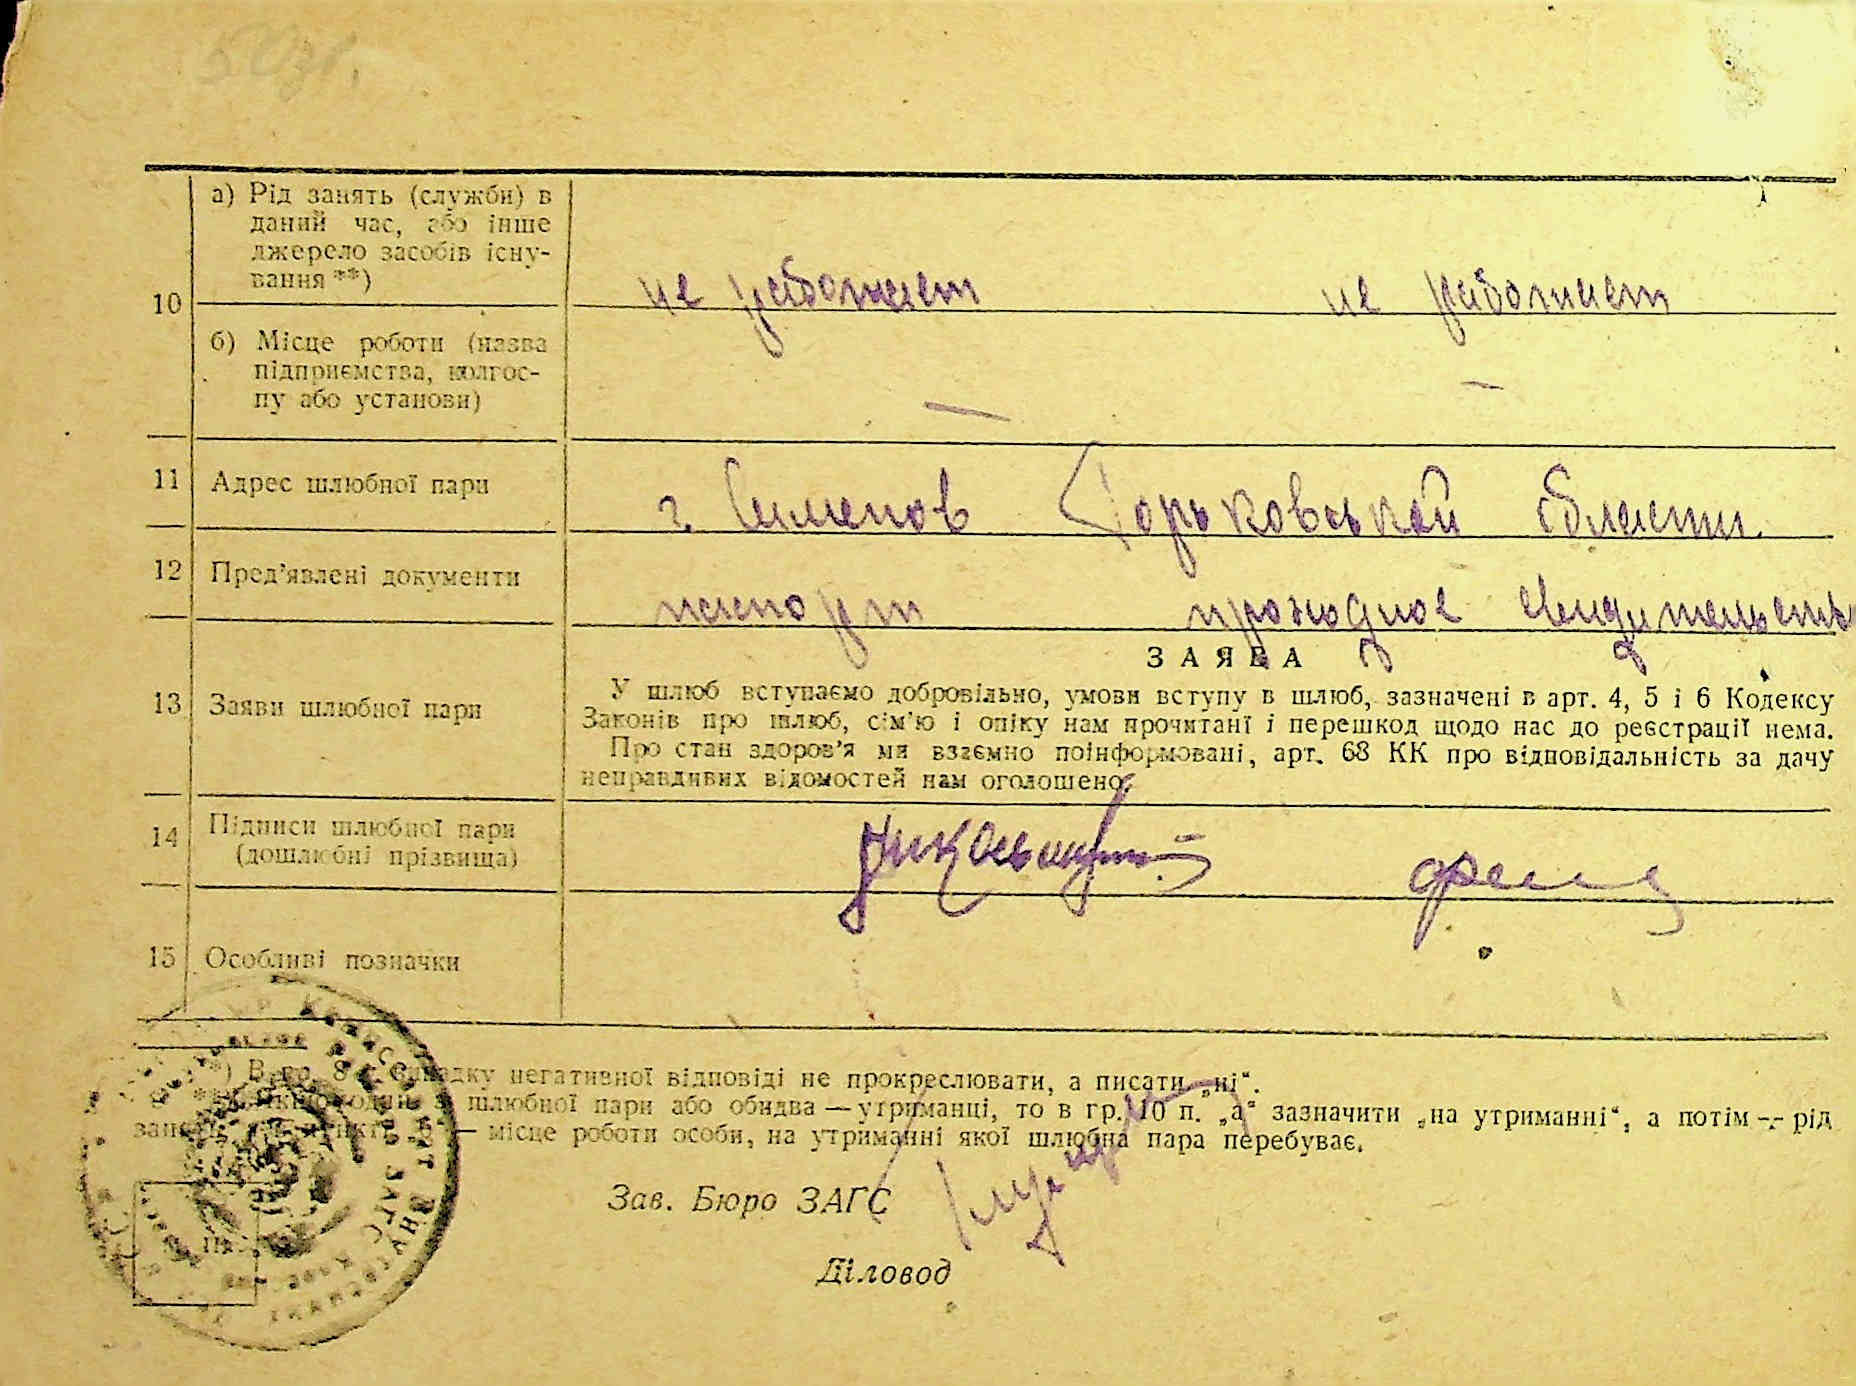 10
а) Рід занять (служби) в
даний час, або інше
джерело засобів існу-
вання **)
не работает не работает
б) Місце роботи (назва
підприємства, колгос-
пу або установи)
— —
11 Адрес шлюбної пари г. Семенов Горьковськой области.
12 Пред’явлені документи паспорт проходное свидетельств
ЗАЯВА
13 Заяви шлюбної пари
У шлюб вступаємо добровільно, умови вступу в шлюб, зазначені в арт. 4, 5 і 6 Кодексу
Законів про шлюб, сім’ю і опіку нам прочитані і перешкод щодо нас до реєстрації нема.
Про стан здоров’я ми взаємно поінформовані, арт. 68 КК про відповідальність за дачу
неправдивих відомостей нам оголошено.
14 Підписи шлюбної пари
(дошлюбні прізвища)
15 Особливі позначки
*) В гр. 8 у випадку негативної відповіді не прокреслювати, а писати „ні“.
шлюбної пари або обидва — утриманці, то в гр. 10 п. „а“ зазначити „на утриманні“, а потім — рід
— місце роботи особи, на утриманні якої шлюбна пара перебуває.
Зав. Бюро ЗАГС
Діловод